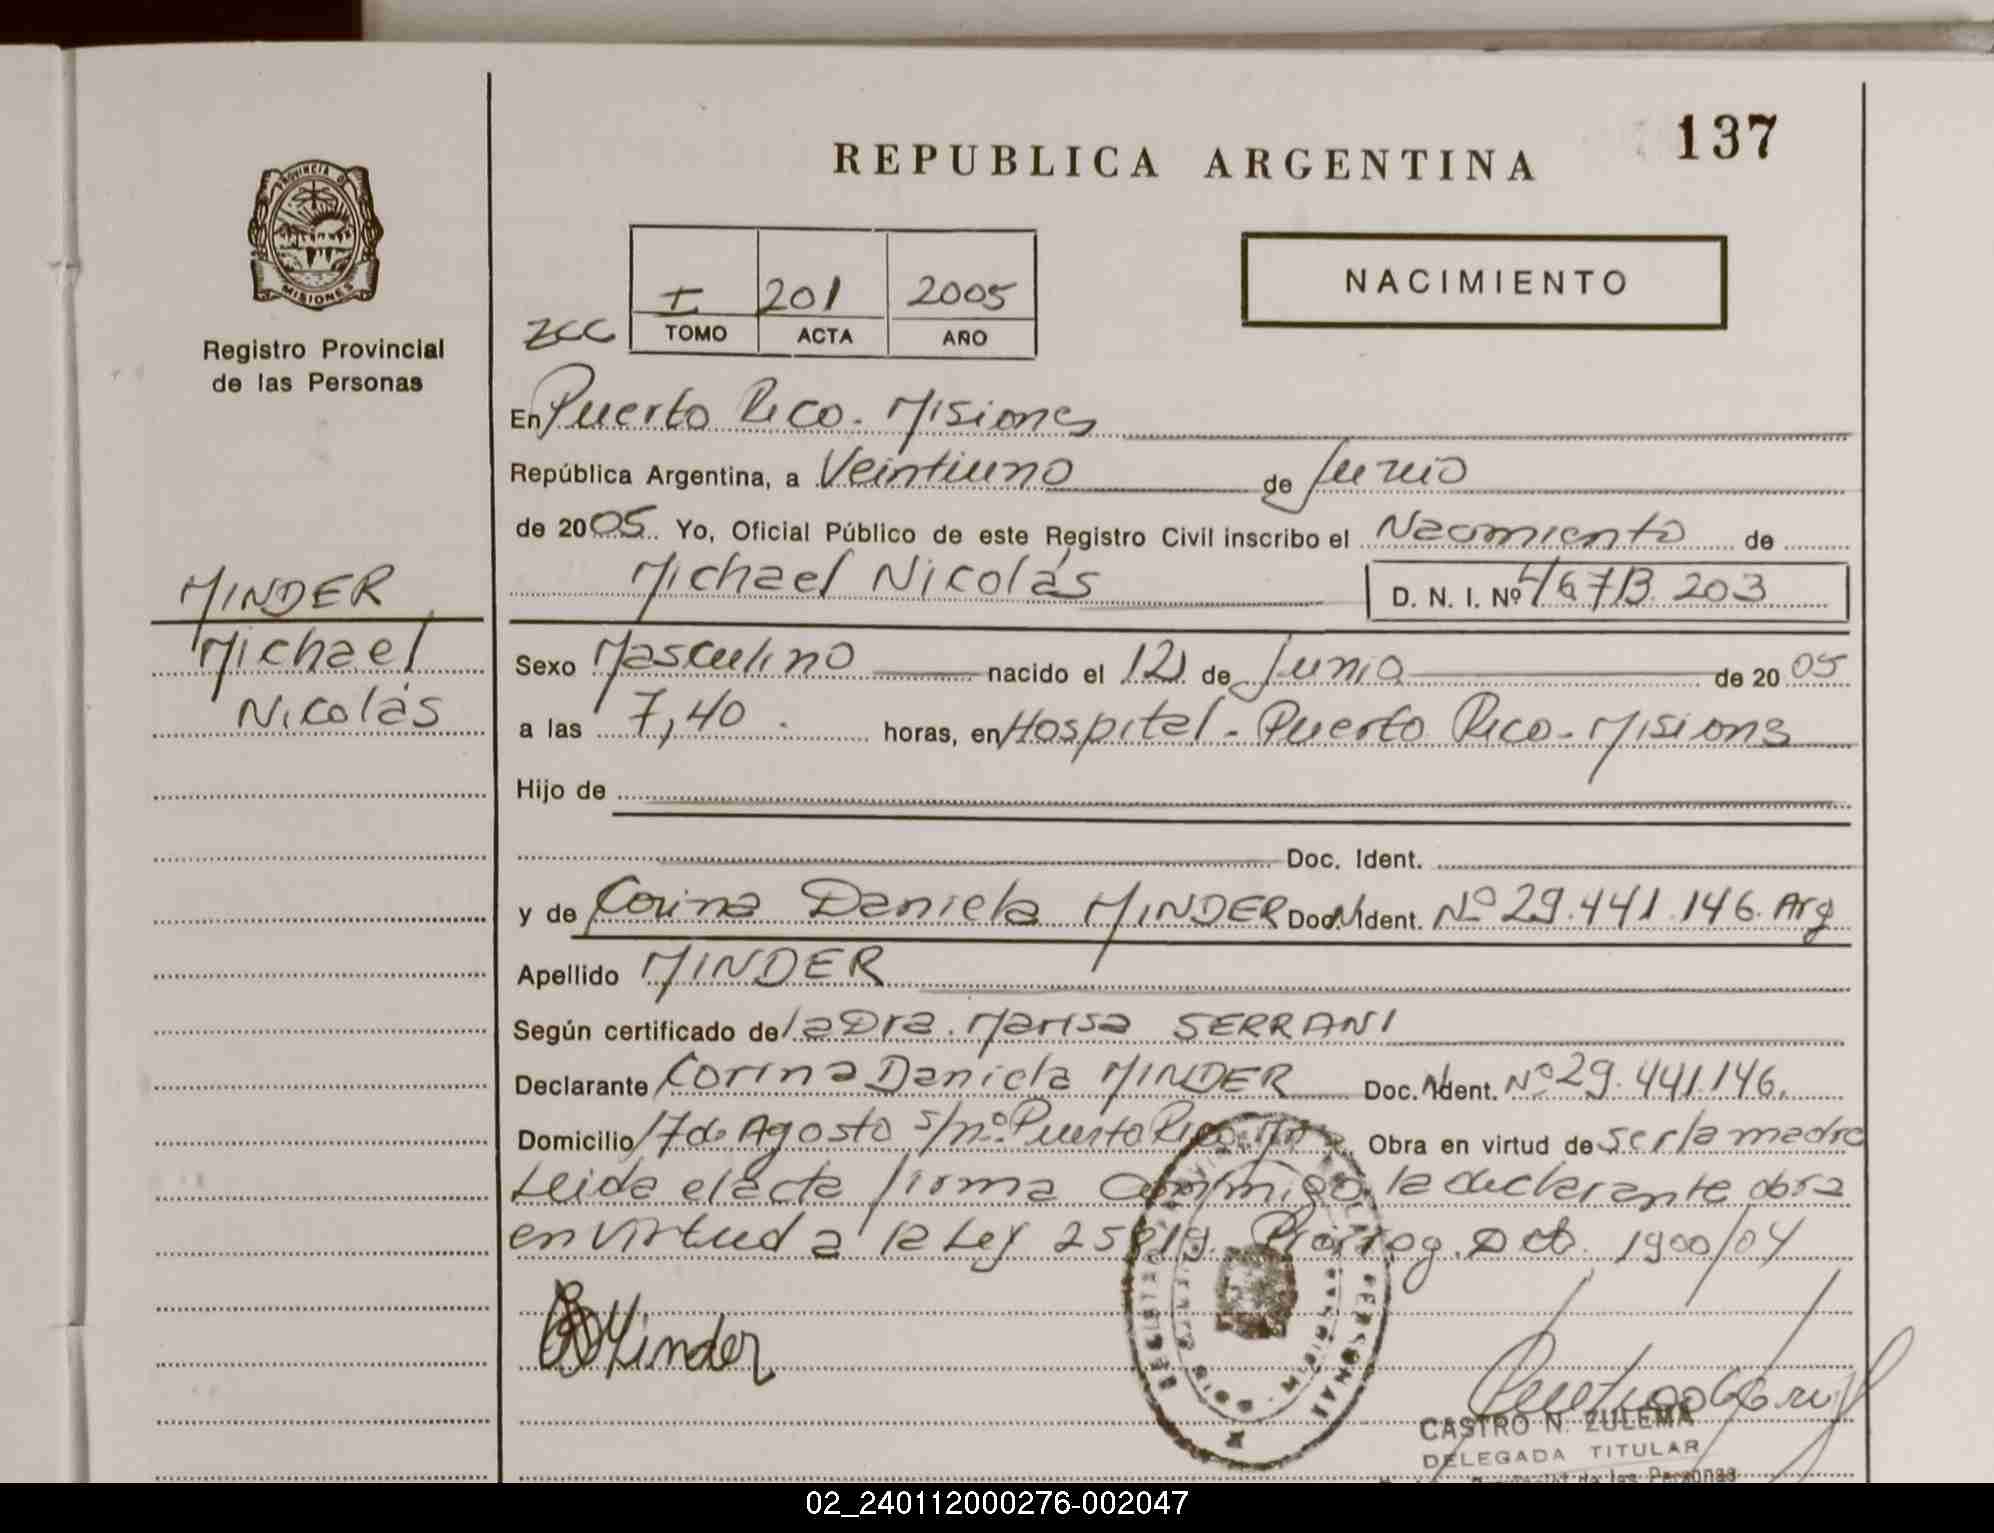 137
REPUBLICA ARGENTINA
PROVINCIA DE
MISIONES
Registro Provincial
de las Personas
NACIMIENTO
I 201 2005
TOMO ACTA AÑO
ZCC
En Puerto Rico. Misiones
República Argentina, a Veintiuno de Junio
de 2005. Yo, Oficial Público de este Registro Civil inscribo el Nacimiento de
Michael Nicolás D. N. I. Nº 46713.203
MINDER
Michael
Nicolás
Sexo Masculino nacido el 12 de Junio de 2005
a las 7,40. horas, en Hospital - Puerto Rico - Misiones
Hijo de
Doc. Ident.
y de Corina Daniela MINDER Doc. Ident. Nº 29.441.146. Arg
Apellido MINDER
Según certificado de la Dra. Marisa SERRANI
Declarante Corina Daniela MINDER Doc. Ident. Nº 29.441.146.
Domicilio 17 de Agosto s/nº Puerto Rico Obra en virtud de ser la madre
Leida el acta firma conmigo la declarante obra
en virtud a la Ley 25819. Prorrog. Dcto. 1900/04
Minder
CASTRO N. ZULEMA
DELEGADA TITULAR
de las Personas
02_240112000276-002047